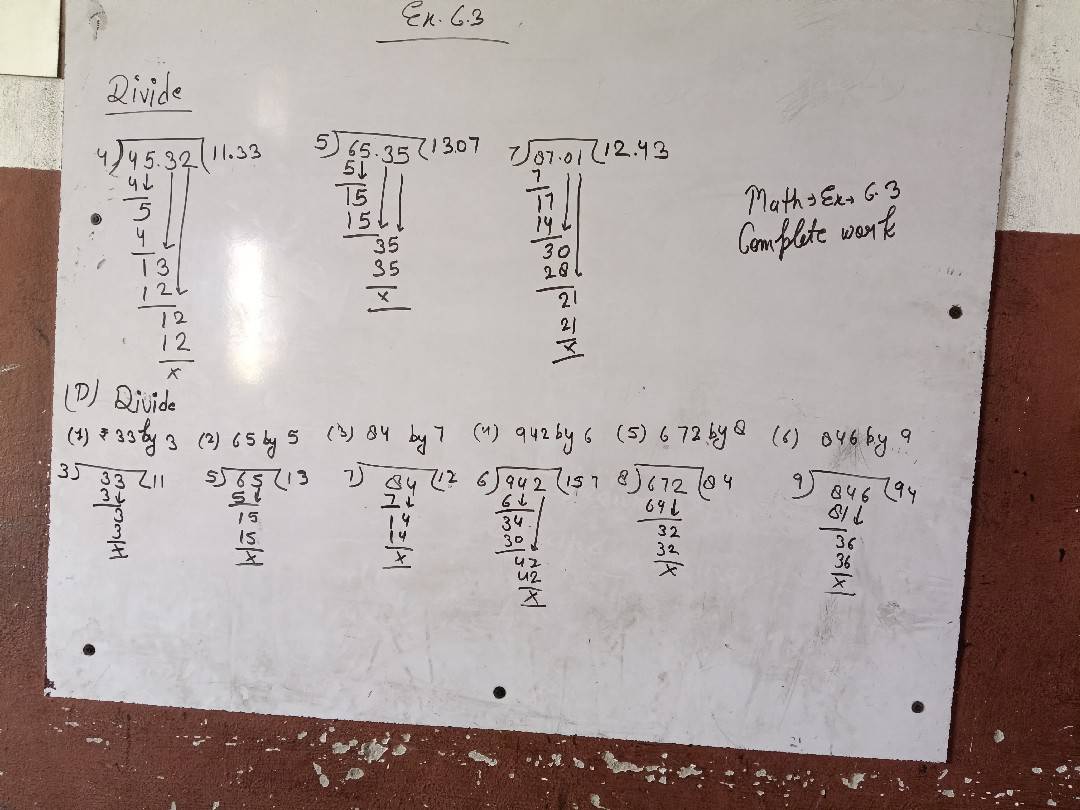 Ex. 6.3
Divide
4)45.32(11.33
4
5
4
13
12
12
12
x
5)65.35(13.07
5
15
15
35
35
x
7)87.01(12.43
7
17
14
30
28
21
21
x
Math → Ex → 6.3
Complete work
(D) Divide
(1) ₹ 33 by 3 (2) 65 by 5 (3) 84 by 7 (4) 942 by 6 (5) 672 by 8 (6) 846 by 9
3)33(11
3
3
3
x
5)65(13
5
15
15
x
7)84(12
7
14
14
x
6)942(157
6
34
30
42
42
x
8)672(84
64
32
32
x
9)846(94
81
36
36
x